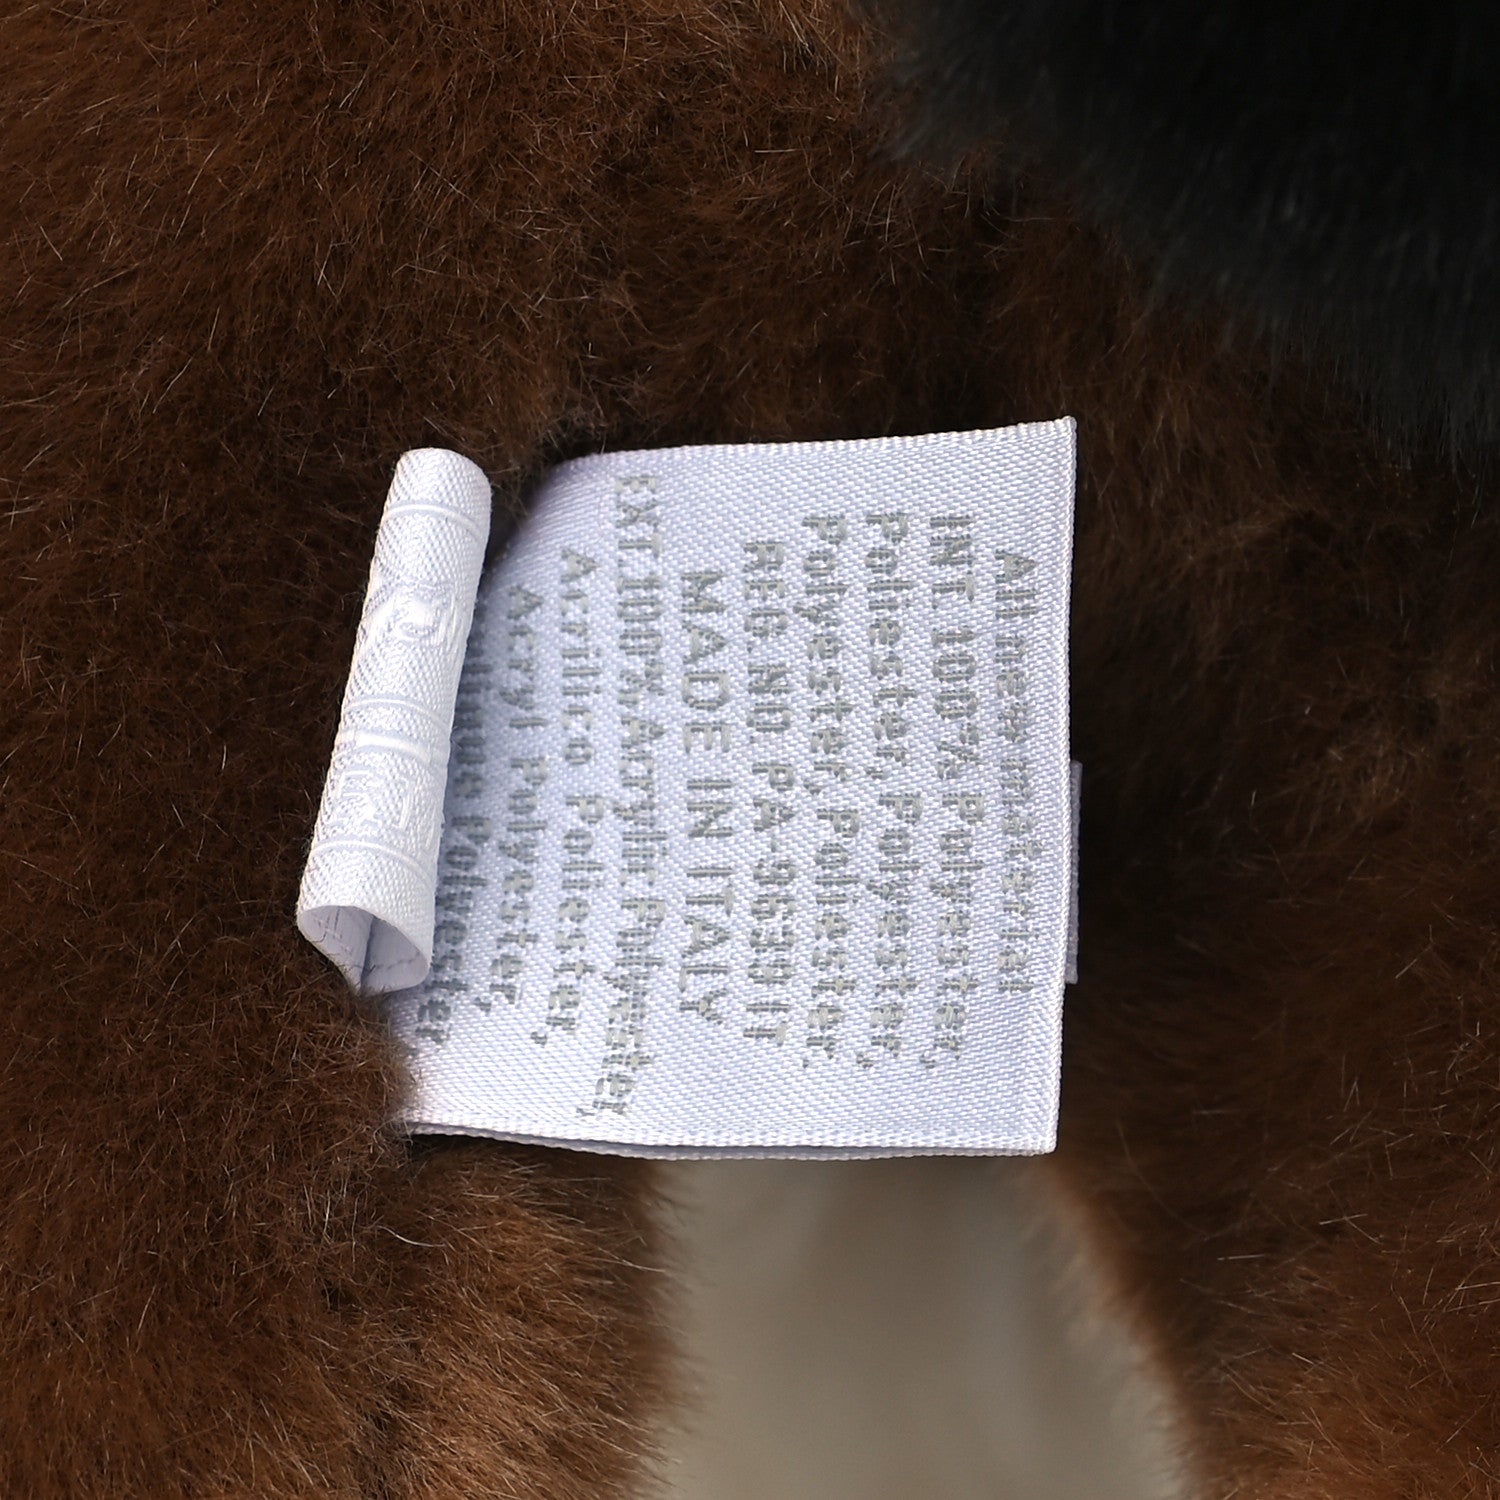 All new material
INT. 100% Polyester,
Poliester, Polyester,
Polyester, Poliester,
REG. NO. PA-9639 IT
MADE IN ITALY
EXT 100% Acrylic Polyester,
Acrilico Poliester,
Acryl Polyester,